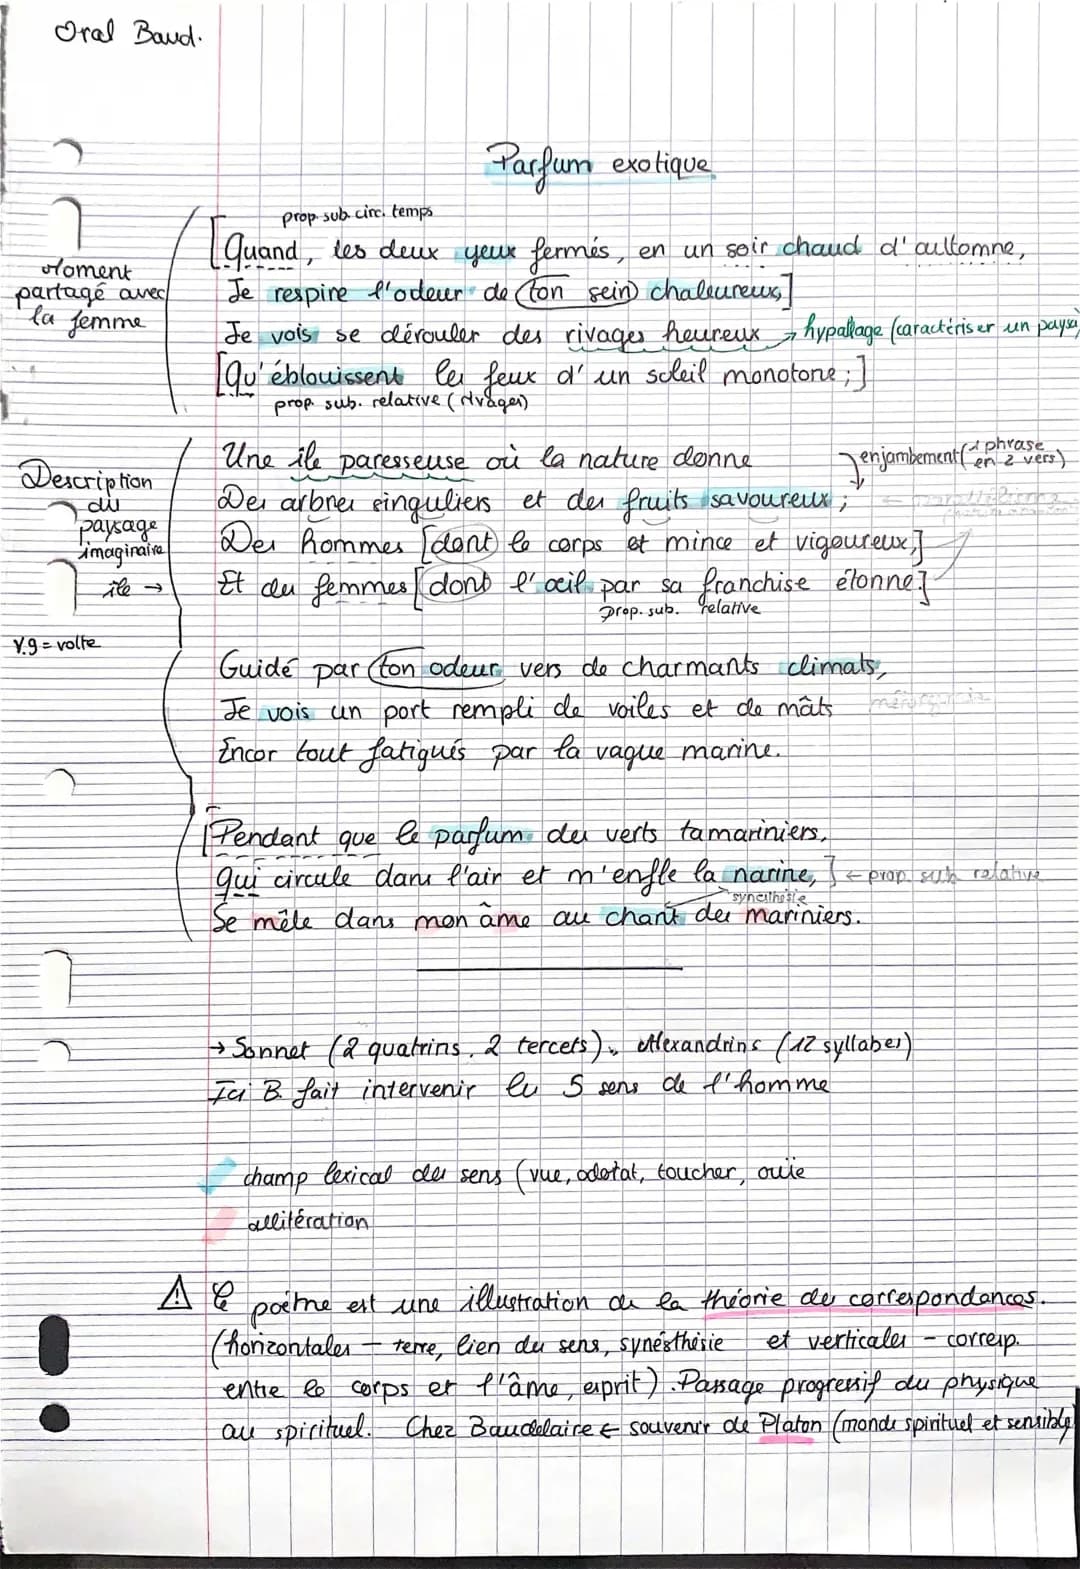 Oral Baud.
Parfum exotique
prop. sub. circ. temps
[Quand, les deux yeux fermés, en un soir chaud d'automne,
Moment partagé avec la femme
Je respire l'odeur de ton sein chaleureux,]
Je vois se dérouler des rivages heureux → hypallage (caractériser un paysa
[Qu'éblouissent les feux d'un soleil monotone ;]
prop. sub. relative (rivages)
Description du paysage imaginaire
île →
Une île paresseuse où la nature donne
enjambement (1 phrase en 2 vers)
Des arbres singuliers et des fruits savoureux ;
Des hommes [dont le corps et mince et vigoureux,]
Et des femmes [dont l'œil par sa franchise étonne.]
prop. sub. relative
v.9 = volte
Guidé par ton odeur vers de charmants climats,
Je vois un port rempli de voiles et de mâts
Encor tout fatigués par la vague marine.
[Pendant que le parfum des verts tamariniers,
Qui circule dans l'air et m'enfle la narine,] ← prop. sub relative
synesthésie
Se mêle dans mon âme au chant des mariniers.
→ Sonnet (2 quatrins, 2 tercets), Alexandrins (12 syllabes)
Ici B. fait intervenir les 5 sens de l'homme
champ lexical des sens (vue, odotat, toucher, ouïe
allitération
⚠ Ce poème est une illustration de la théorie des correspondances.
(horizontales – terre, lien des sens, synésthésie et verticales – corresp.
entre le corps et l'âme, esprit). Passage progressif du physique
au spirituel. Chez Baudelaire ← souvenir de Platon (monde spirituel et sensible)